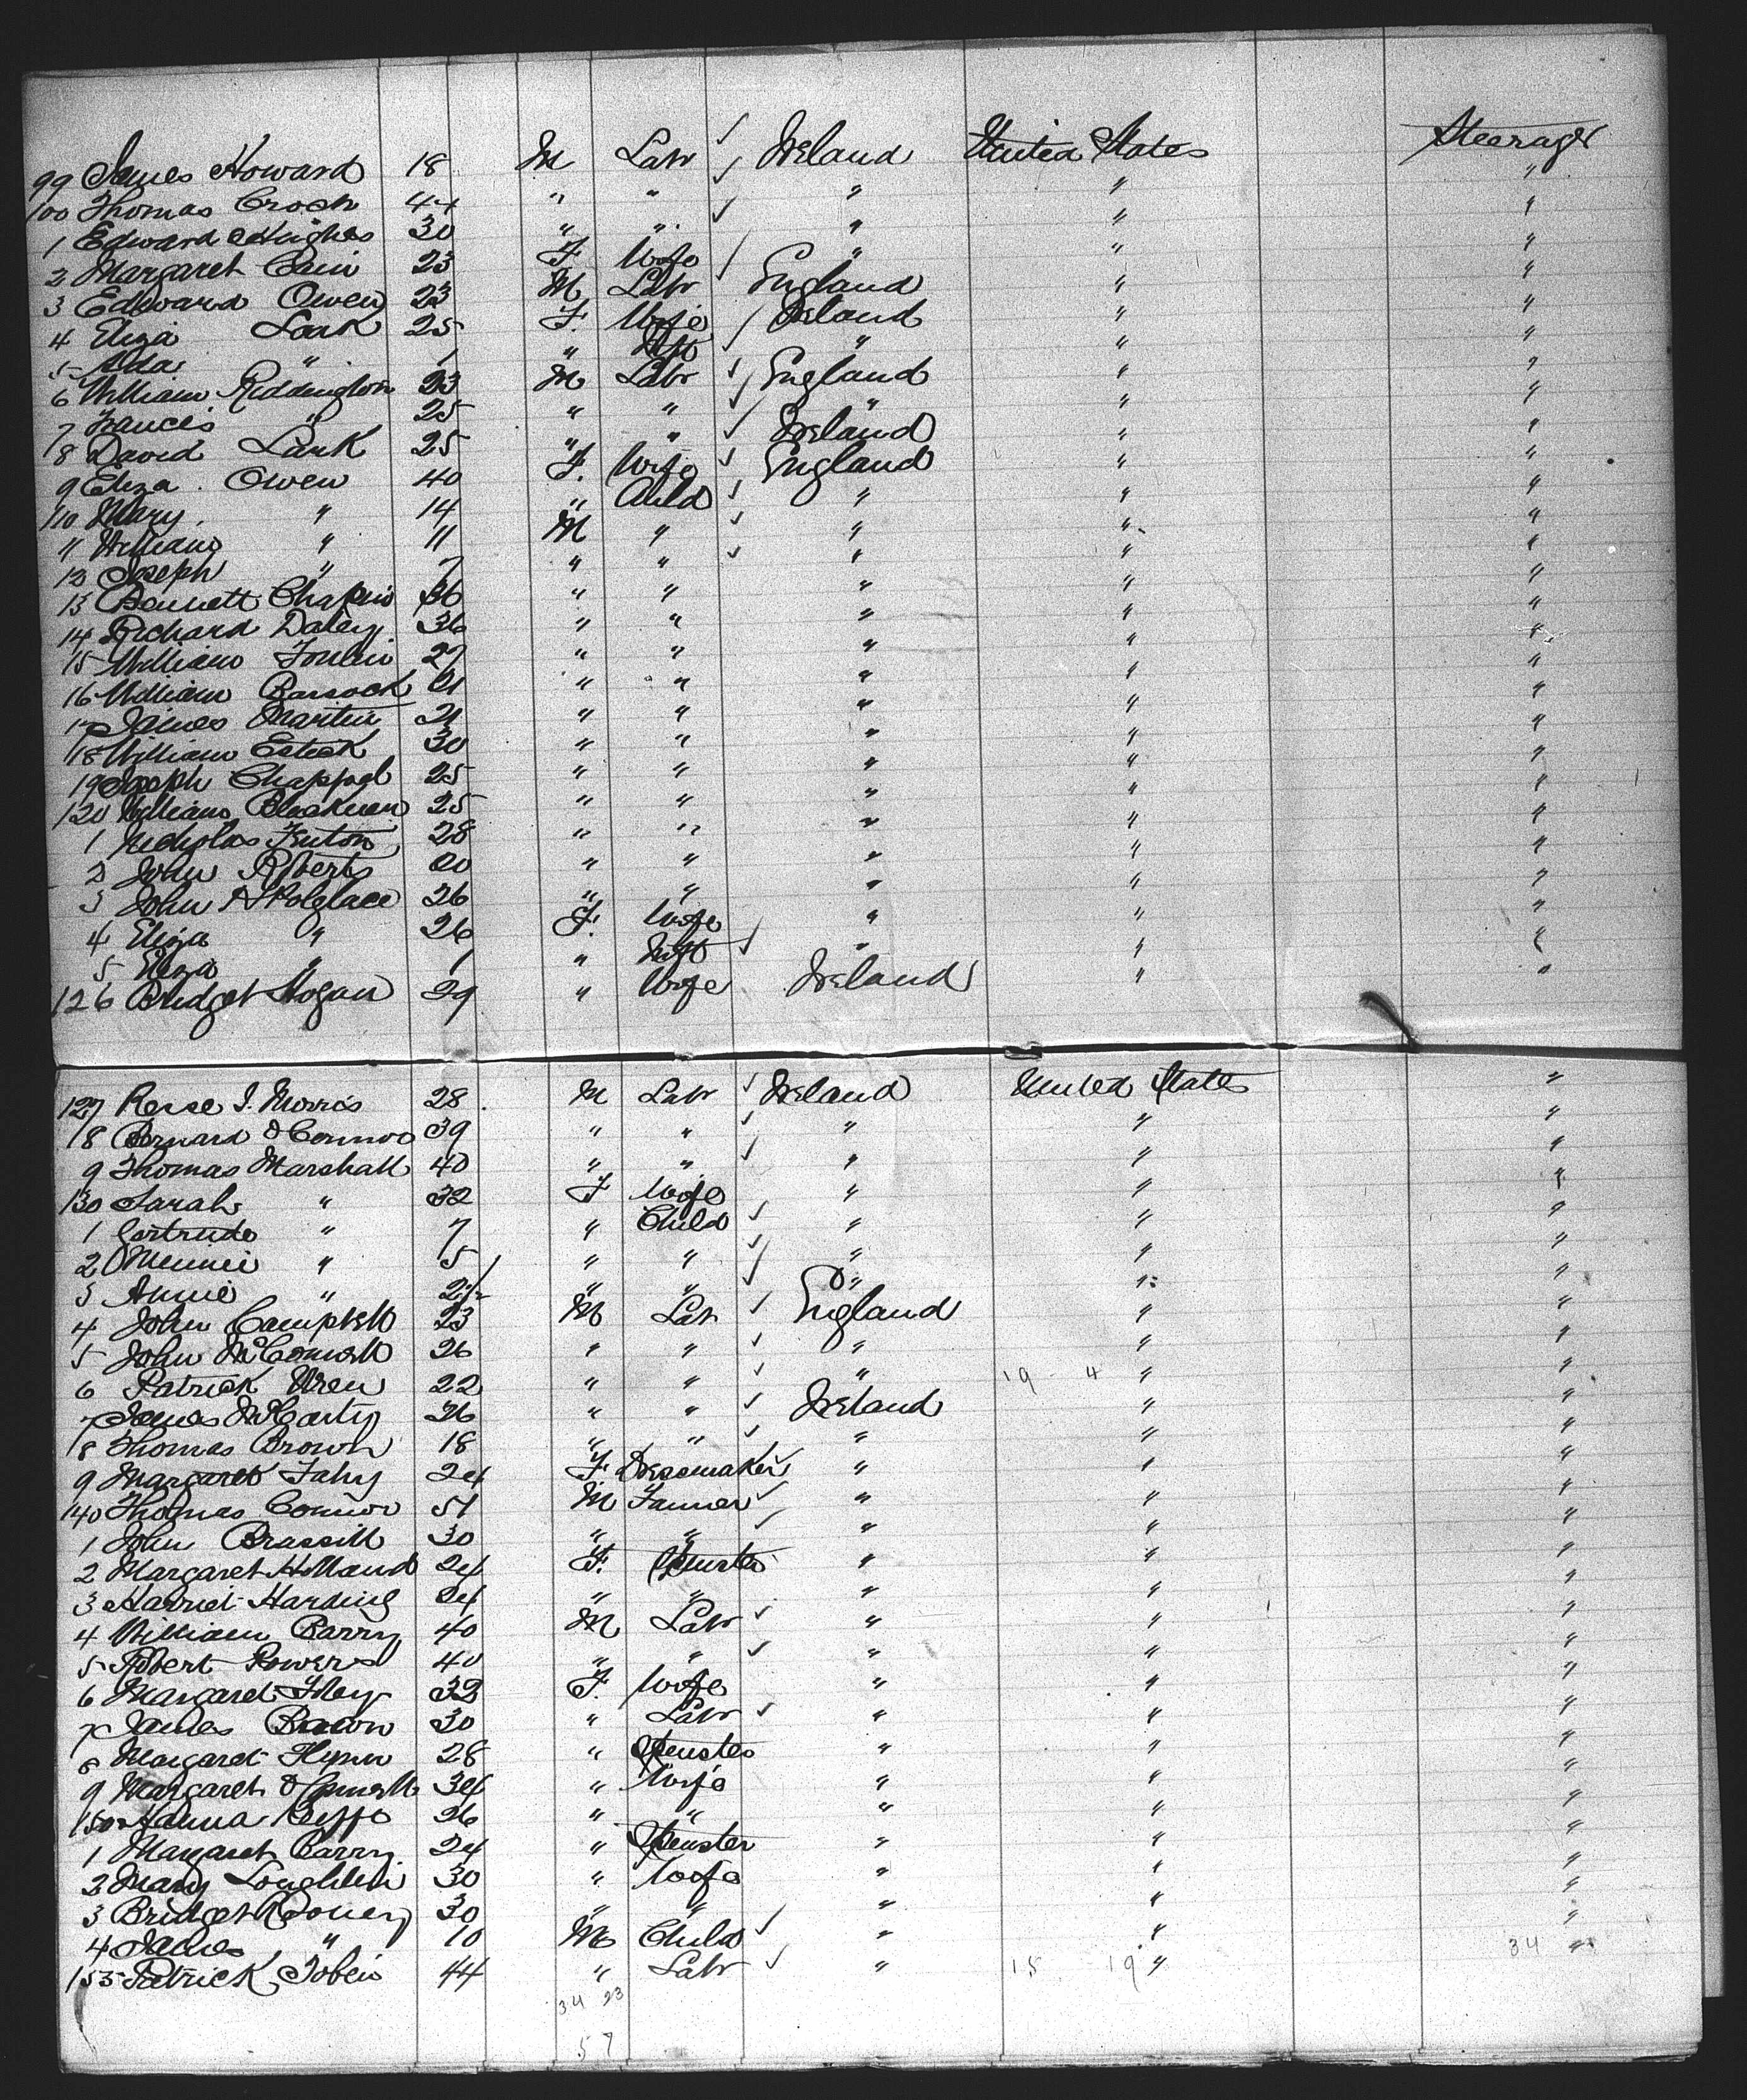 99 James Howard 18 M Labr ✓ Ireland United States Steerage
100 Thomas Crosh 44 " " ✓ " " "
1 Edward Hughes 30 " " ✓ " " "
2 Margaret Cain 23 F Wife " " "
3 Edward Owen 23 M Labr ✓ England " "
4 Eliza Lark 25 F. Wife Ireland " "
5 Ada " 1 " Inft ✓ " " "
6 William Riddington 23 M Labr ✓ England " "
7 Frances " 25 " " ✓ " " "
8 David Lark 25 " " ✓ Ireland " "
9 Eliza Owen 40 F. Wife ✓ England " "
110 Mary " 14 " Child ✓ " " "
11 William " 11 M " ✓ " " "
12 Joseph " 7 " " ✓ " " "
13 Bennett 36 " " " " "
14 Richard Daley 36 " " " " "
15 William 27 " " " " "
16 William " " " " "
17 James Martin 21 " " " " "
18 William 30 " " " " "
19 Joseph Chappel 25 " " " " "
120 William Blackmen 25 " " " " "
1 Nicholas 28 " " " " "
2 John Roberts 20 " " " " "
3 John 26 " " " " "
4 Eliza " 26 F. Wife " " "
5 Eliza " 1 " Inft ✓ " " "
126 Bridget Hogan 29 " Wife Ireland " "
127 Resse I. Morris 28 M Labr ✓ Ireland United States "
8 Bernard O'Connor 39 " " ✓ " " "
9 Thomas Marshall 40 " " ✓ " " "
130 Sarah " 32 F Wife " " "
1 Gertrude " 7 " Child ✓ " " "
2 Minnie " 5 " " ✓ " " "
3 Annie " 2 1/2 " " ✓ " " "
4 John Campbell 23 M Lab ✓ England " "
5 John McConnell 26 " " ✓ " " "
6 Patrick Wren 22 " " ✓ " 19 4 " "
7 James McCarty 26 " " ✓ Ireland " "
8 Thomas Brown 18 " " ✓ " " "
9 Margaret Fahy 24 F Dressmaker ✓ " " "
140 Thomas Connor 51 M Farmer ✓ " " "
1 John Brassill 30 " " ✓ " " "
2 Margaret Holland 24 F. Spinster " " "
3 Harriet Harding 24 " " " " "
4 William Barry 40 M Labr ✓ " " "
5 Robert Powers 40 " " ✓ " " "
6 Margaret Foley 32 F. Wife " " "
7 James Brown 30 " Labr ✓ " " "
8 Margaret Flynn 28 " Spinster " " "
9 Margaret O'Connell 34 " Wife " " "
150 Hanna Keffe 26 " " " " "
1 Margaret Barry 24 " Spinster " " "
2 Mary Loughlin 30 " Wife " " "
3 Bridget 30 " " " " "
4 James " 10 M Child ✓ " " 34 "
155 Patrick Tobin 44 " Labr ✓ " 15 19 "
34 23
57